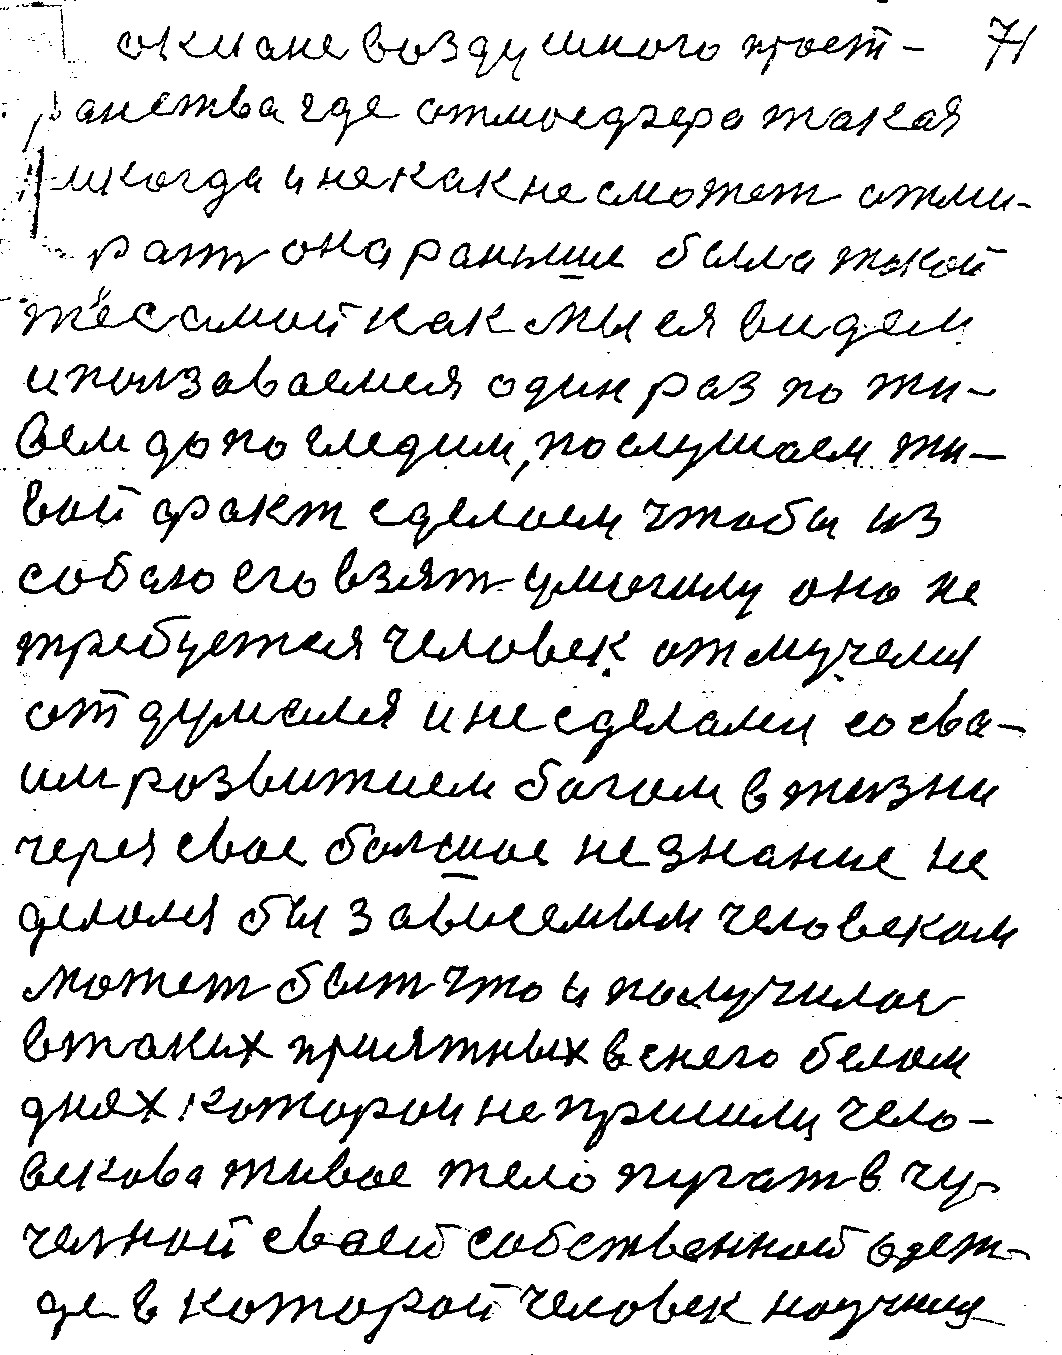 окиане воздушного прост- 71
ранства где атмосфера такая
никогда и некак не сможет отми-
рат она раньше была такой
же самой как мы ея видем
и ползаваемся один раз по жи-
вем до по следим, послушаем жи-
вой факт сделаем чтобы из
собою его взят умогилу оно не
требуется человек отмучелся
от думался и не сделали со сва-
им розвитием богом в жизни
через свое болшое не знание не
делался бы зависемым человеком
может быт что и получилос
в таких приятных в снего белом
днях которои не пришли чело-
векова живое тело пугат в чу-
челной своей собственной одеж-
де в которой человек научился